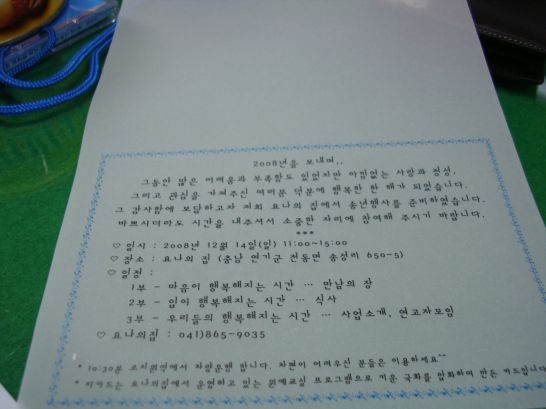 2008년을 보내며..
그동안 많은 어려움과 부족함도 있었지만 아낌없는 사랑과 정성,
그리고 관심을 가져주신 여러분 덕분에 행복한 한 해가 되었습니다.
그 감사함에 보답하고자 저희 요나의 집에서 송년행사를 준비하였습니다.
바쁘시더라도 시간을 내주셔서 소중한 자리에 참여해 주시기 바랍니다.
***
♡ 일시 : 2008년 12월 14일(일) 11:00~15:00
♡ 장소 : 요나의 집 (충남 연기군 전동면 송성리 650-5)
♡ 일정 :
1부 - 마음이 행복해지는 시간 … 만남의 장
2부 - 입이 행복해지는 시간 … 식사
3부 - 우리들의 행복해지는 시간 … 사업소개, 연고자모임
♡ 요나의집 : 041)865-9035
* 10:30분 조치원역에서 차량운행 합니다. 차편이 어려우신 분들은 이용하세요^^
* 이카드는 요나의집에서 운영하고 있는 원예교실 프로그램으로 키운 국화를 압화하여 만든 카드입니다.